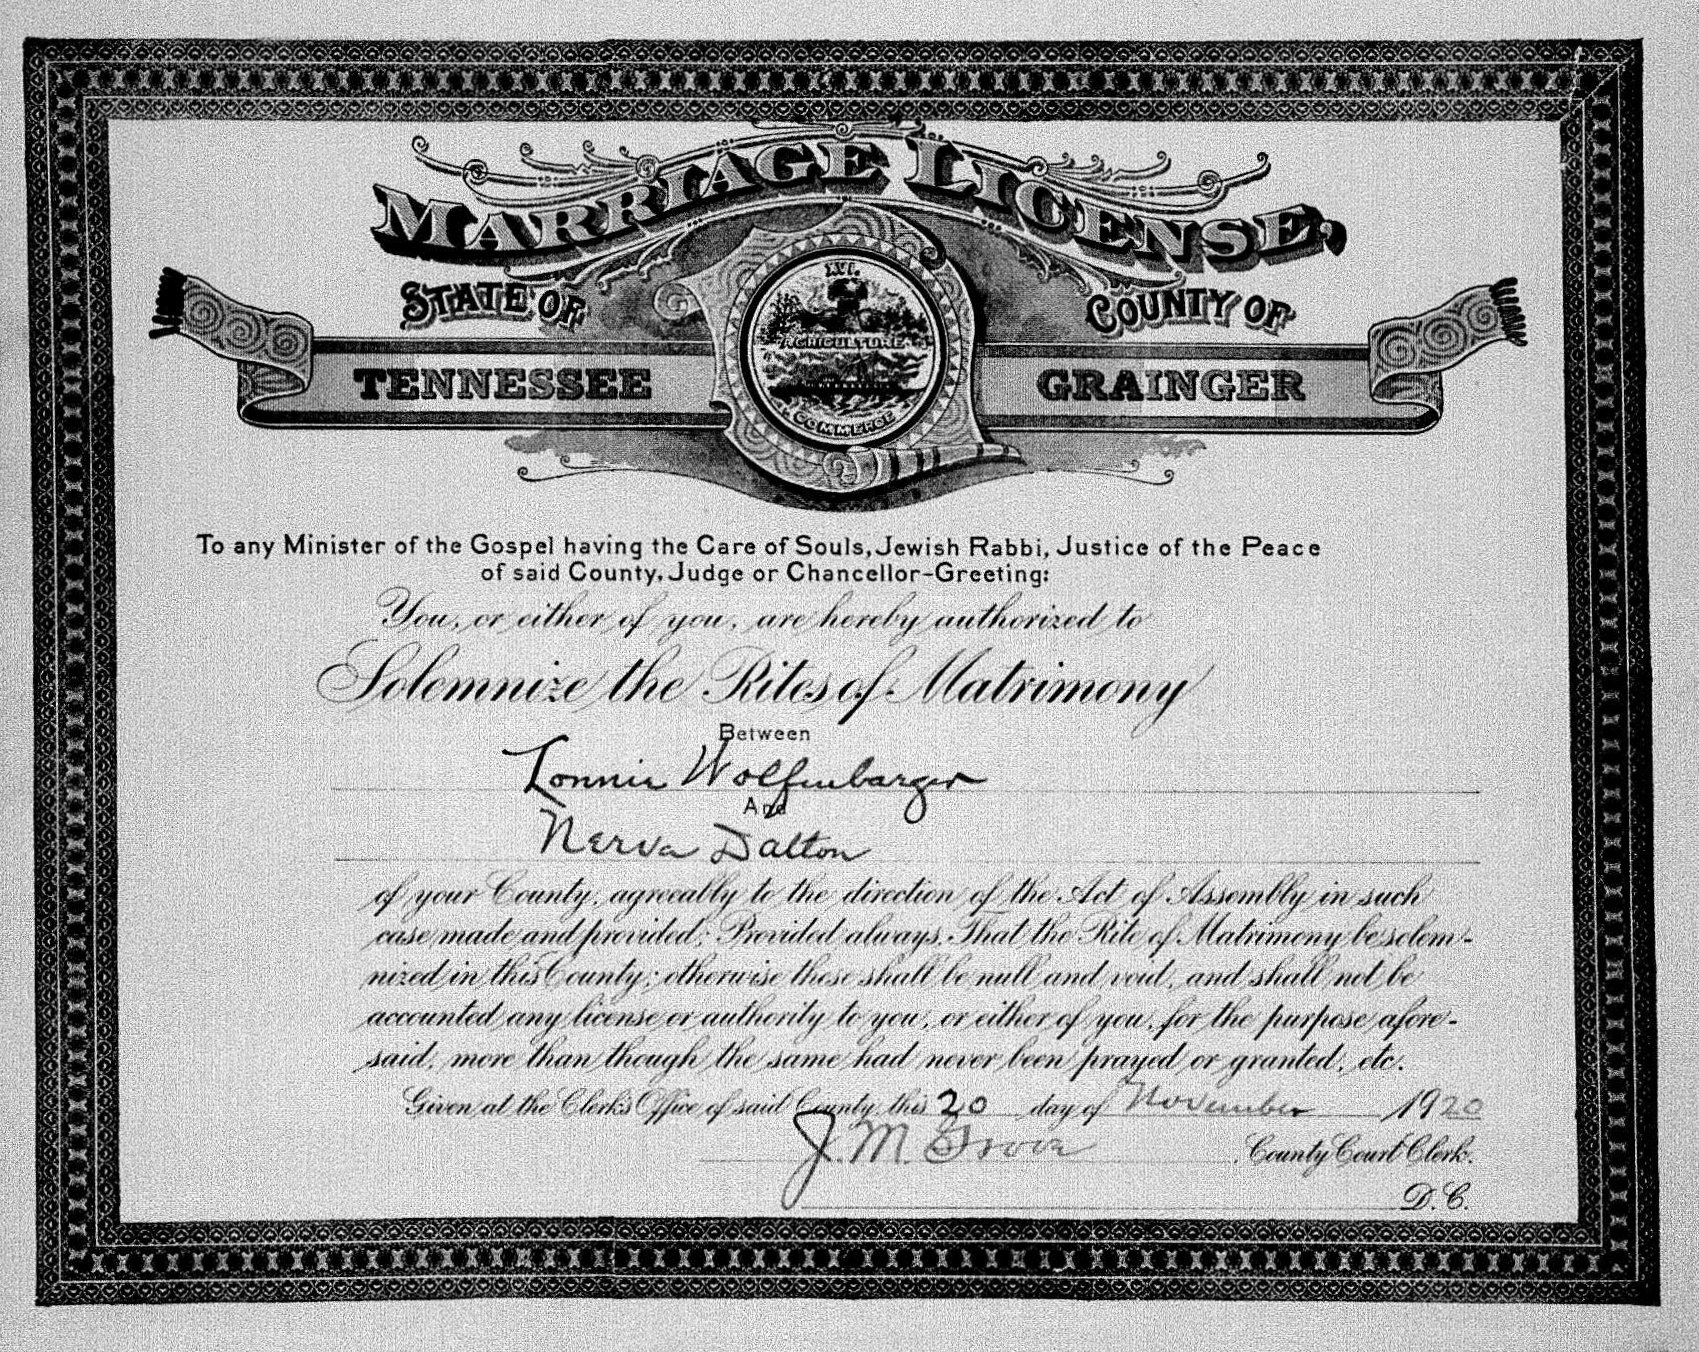 MARRIAGE LICENSE,
STATE OF
COUNTY OF
TENNESSEE
GRAINGER
XVI.
AGRICULTURE
COMMERCE
To any Minister of the Gospel having the Care of Souls, Jewish Rabbi, Justice of the Peace
of said County, Judge or Chancellor-Greeting:
You, or either of you, are hereby authorized to
Solemnize the Rites of Matrimony
Between
Lonnie Wolfenbarger
And
Nerva Dalton
of your County, agreeably to the direction of the Act of Assembly in such
case made and provided; Provided always, That the Rite of Matrimony be solem-
nized in this County; otherwise these shall be null and void, and shall not be
accounted any license or authority to you, or either of you, for the purpose afore-
said, more than though the same had never been prayed or granted, etc.
Given at the Clerk's Office of said County, this 20 day of November 1920
J. M. Grove County Court Clerk.
D. C.